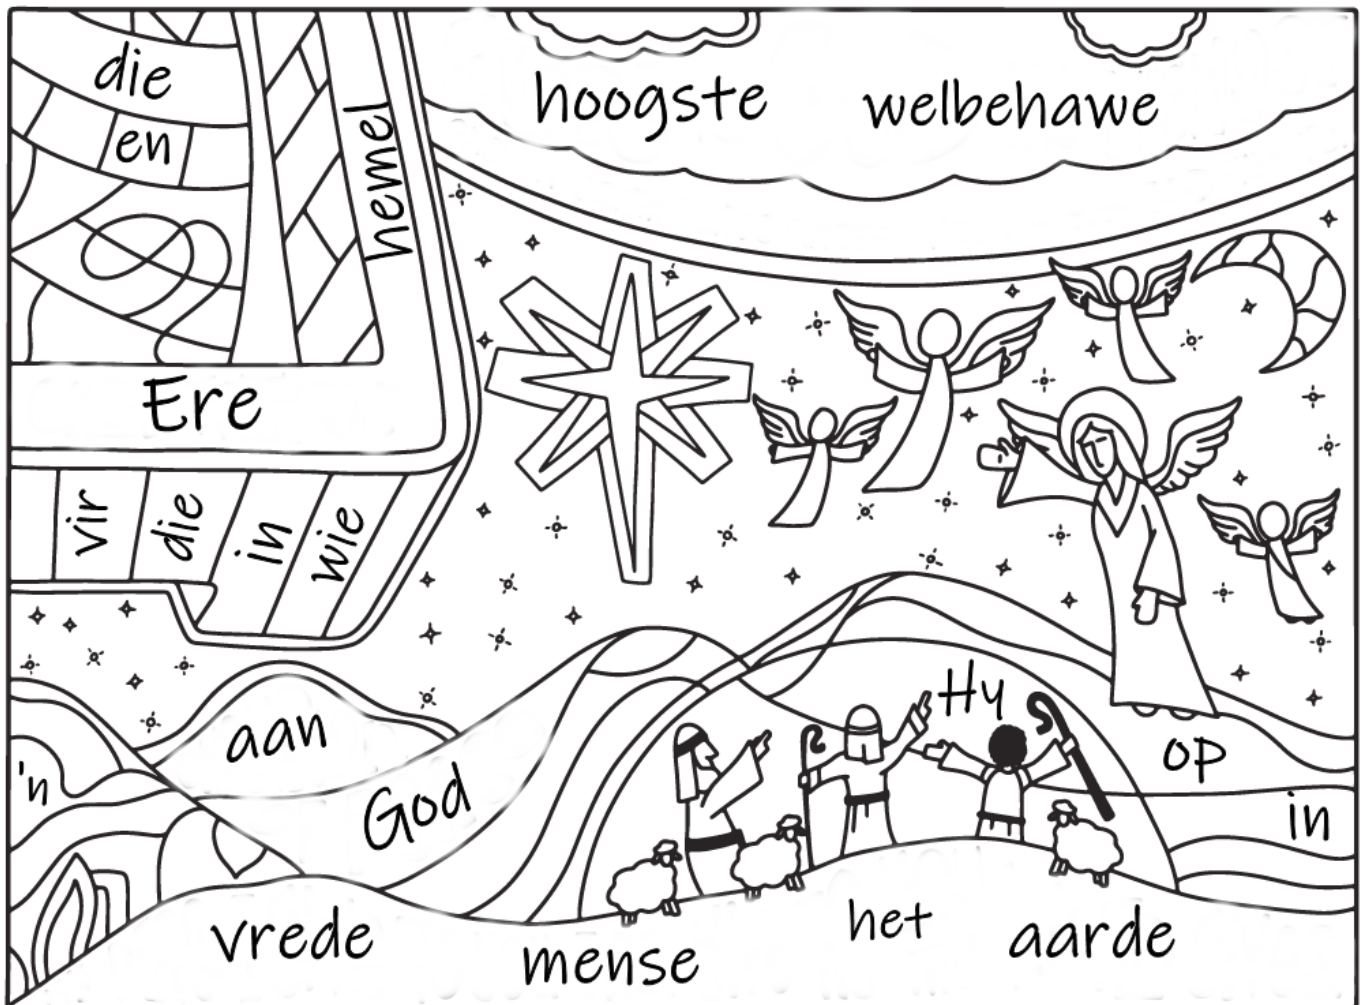 die
en
hemel
hoogste welbehawe
Ere
vir
die
in
wie
aan
God
'n
Hy
op
in
vrede
mense
het
aarde